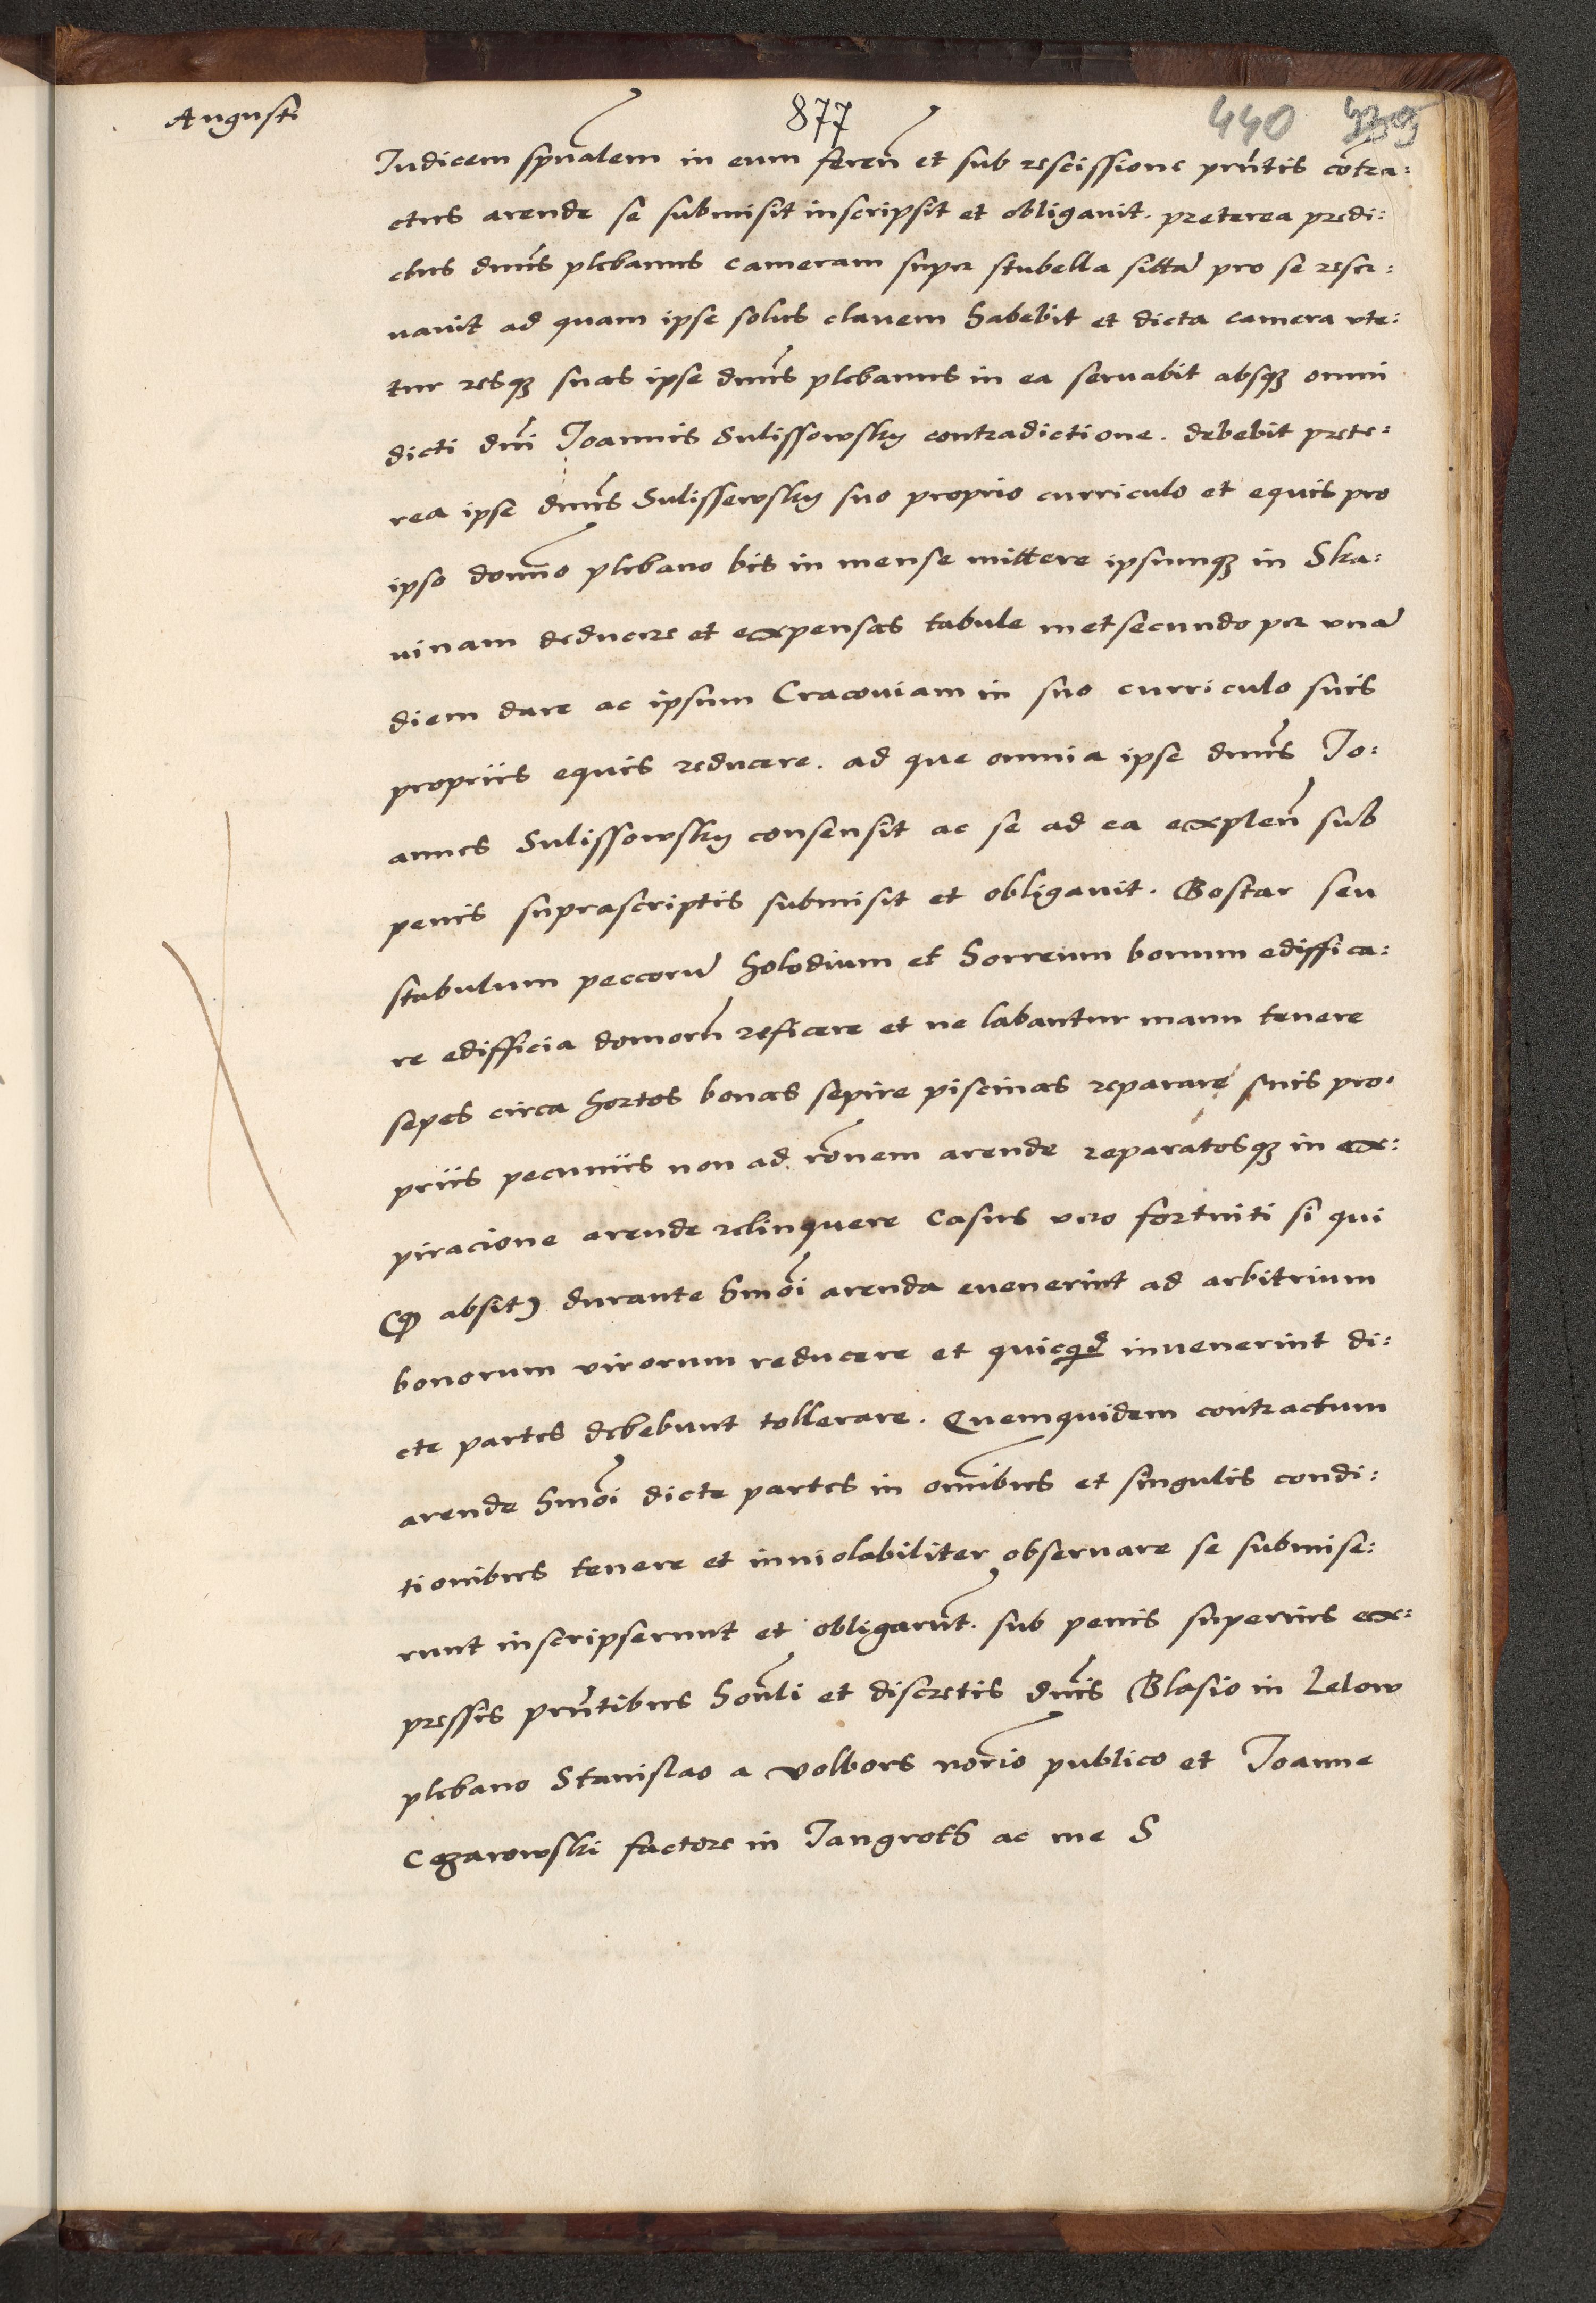 Augusti
877
440
439
Iudicem sp̃ualem in eum ferẽn et sub rescissione pñtis cõtra:
ctus arende se submisit inscripsit et obligauit. preterea predi:
ctus dñus plebanus cameram super stubella sittã pro se reser:
uauit ad quam ipse solus clauem habebit et dicta camera vte:
tur resqz suas ipse dñus plebanus in ea seruabit absqz omni
dicti dñi Ioannis Sulissowsky contradictione. debebit prete:
rea ipse dñus Sulissewsky suo proprio curriculo et equis pro
ipso domño plebano bis in mense mittere ipsumqz in Ska:
uinam deducere et expensas tabule metsecundo per vnã
diem dare ac ipsum Cracouiam in suo curriculo suis
propriis equis reducere. ad que omnia ipse dñus Io:
annes Sulissowsky consensit ac se ad ea explen̄ sub
penis suprascriptis submisit et obligauit. Bostar seu
stabulum peccorũ holodium et horreum bonum ediffica:
re edifficia domorũ reficere et ne labantur manu tenere
sepes circa hortos bonas sepire piscinas reparare suis pro:
priis pecuniis non ad rõnem arende reparatosqz in ex:
piracione arende relinquere Casus vero fortuiti si qui
(qđ absit) durante hmõi arenda euenerint ad arbitrium
bonorum virorum reducere et quicqͥd inuenerint di:
cte partes debebunt tollerare. Quemquidem contractum
arende hmõi dicte partes in om̃ibus et singulis condi:
tionibus tenere et inuiolabiliter obseruare se submise:
runt inscripserunt et obligarũt. sub penis superius ex:
pressis pñtibus hon̄li et discretis dñis Blasio in Lelow
plebano Stanislao a Volbors norĩo publico et Ioanne
Czarowski factore in Iangroth ac me S